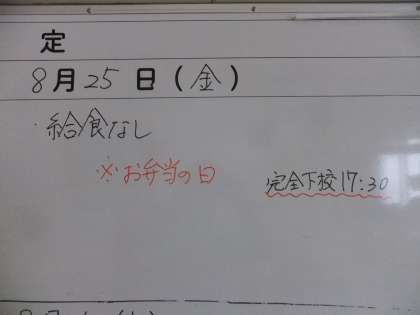 定
8月25日(金)
・給食なし
※お弁当の日
完全下校17:30